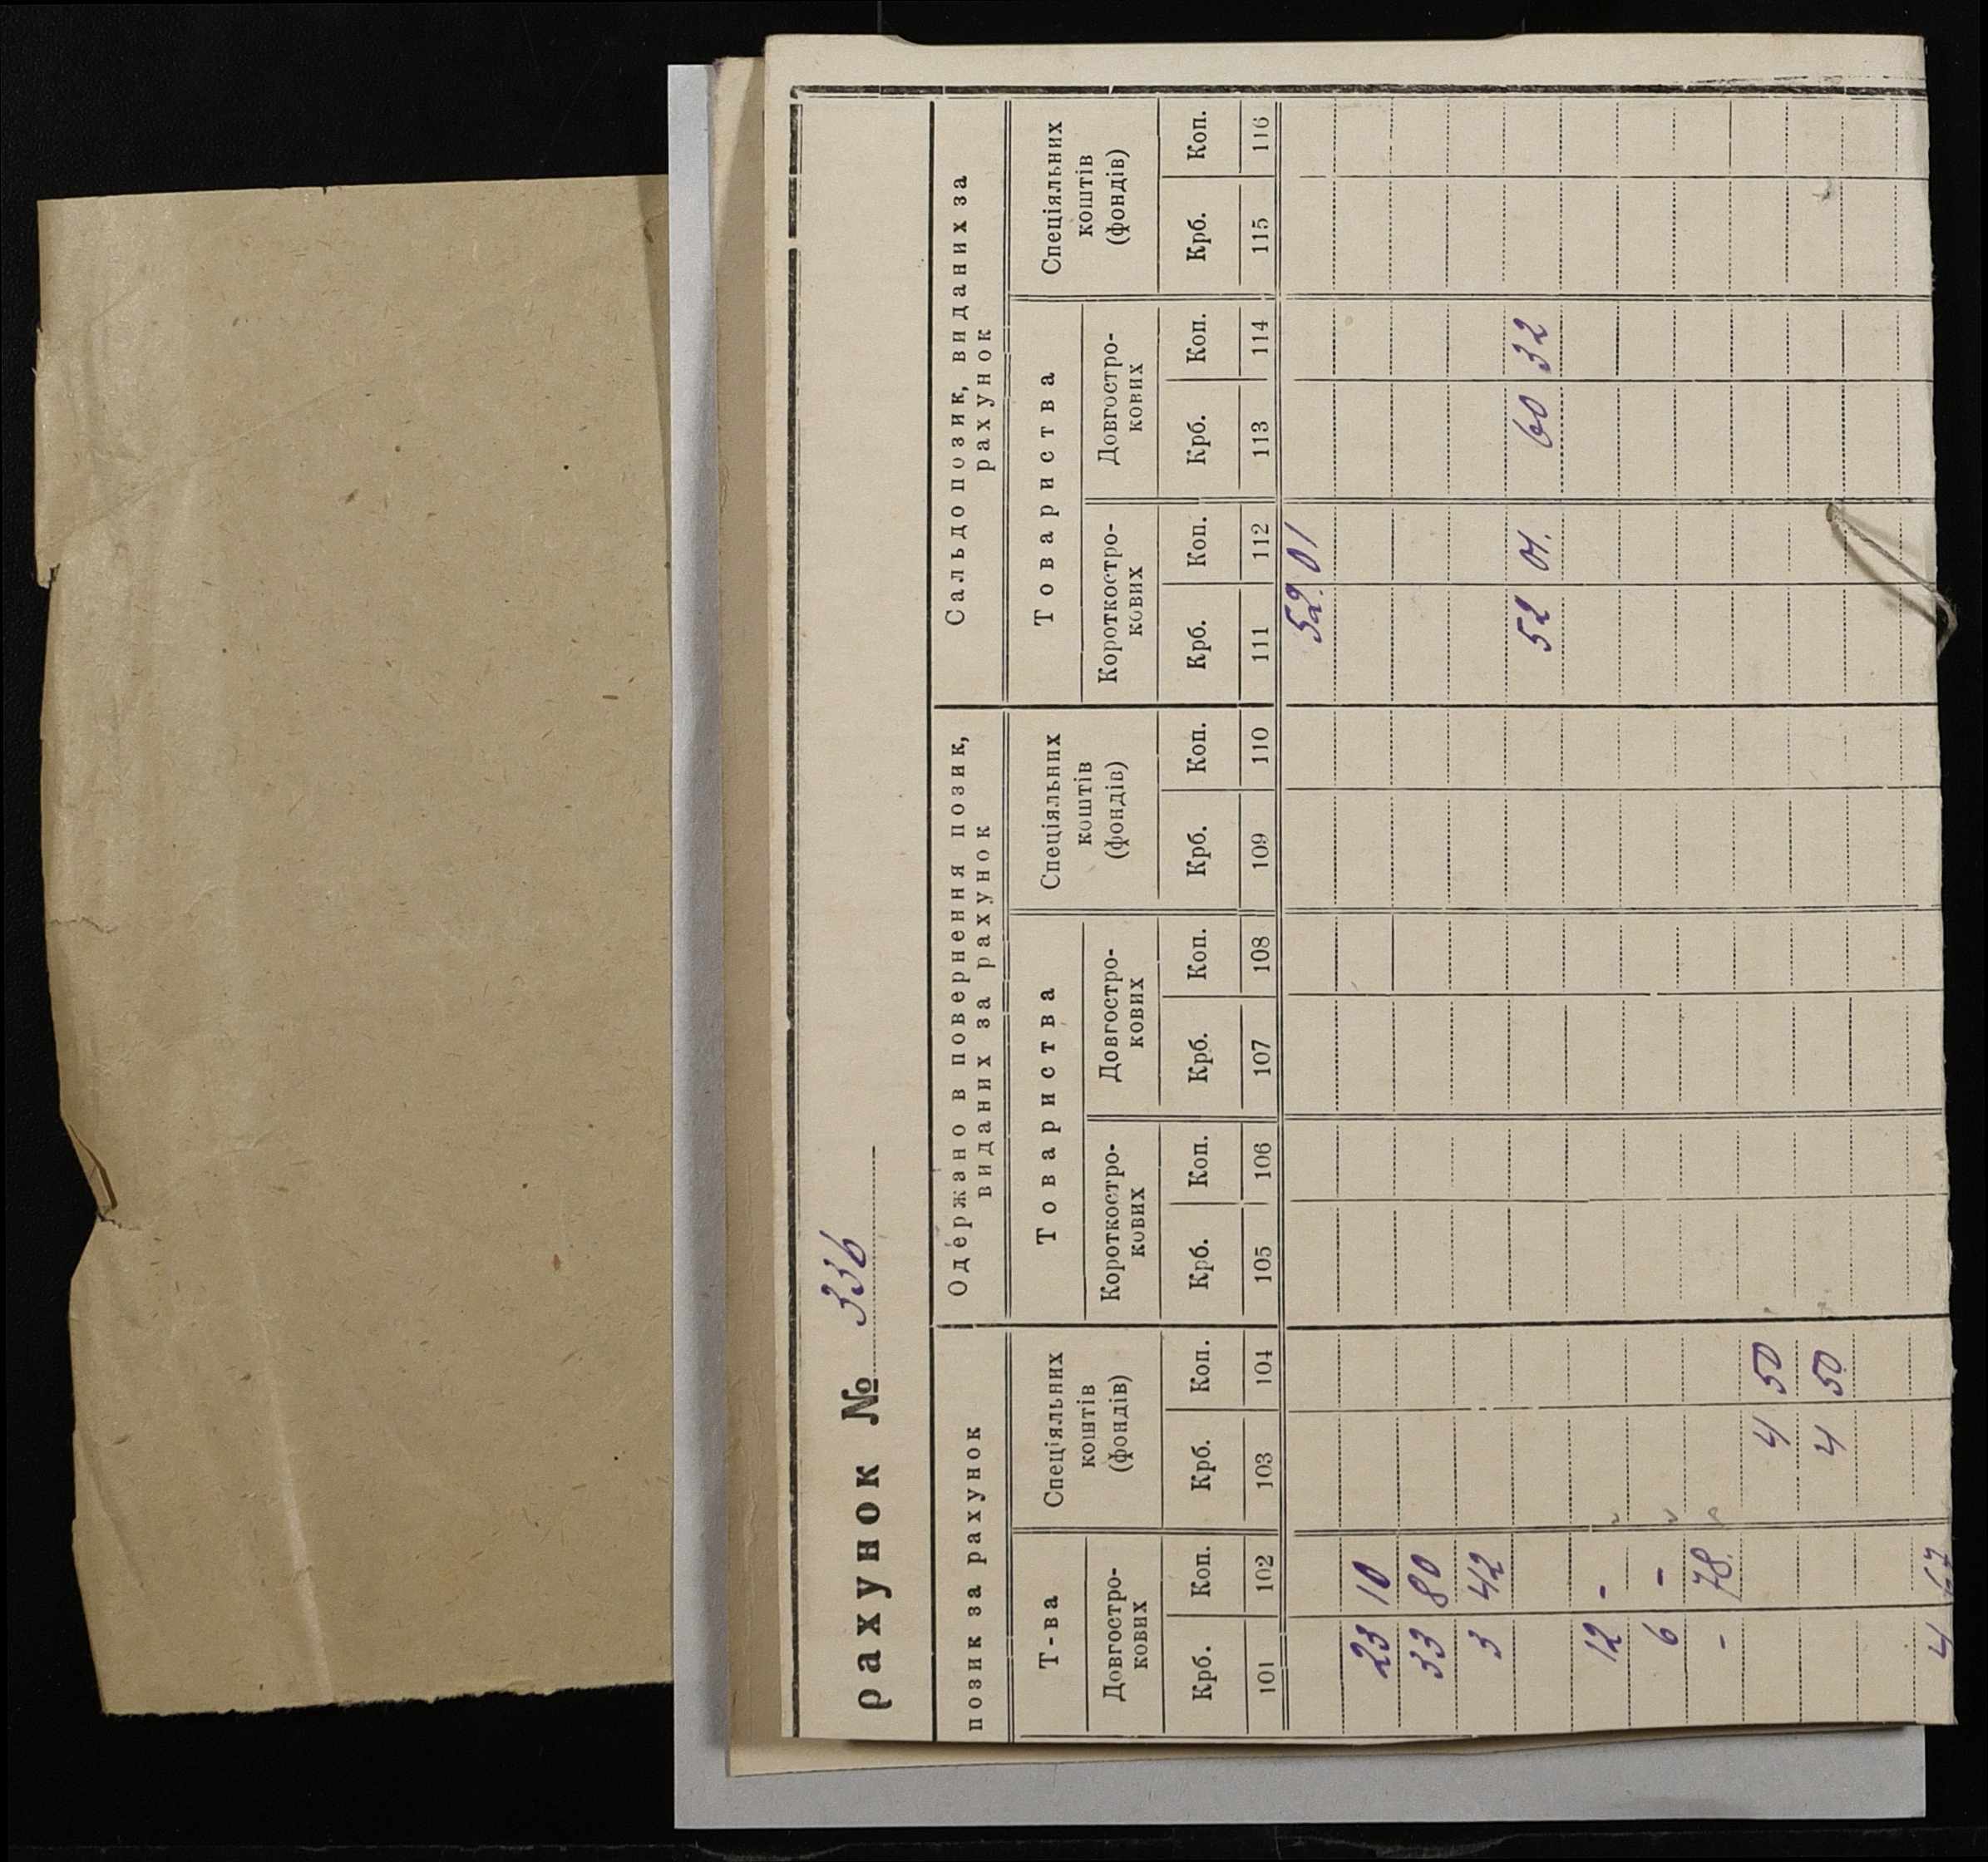 рахунок № 336
позик за рахунок
Одержано в повернення позик, виданих за рахунок
Сальдо позик, виданих за рахунок
Т-ва
Спеціяльних коштів (фондів)
Товариства
Спеціяльних коштів (фондів)
Товариства
Спеціяльних коштів (фондів)
Довгостро-кових
Короткостро-кових
Довгостро-кових
Короткостро-кових
Довгостро-кових
Крб. Коп. Крб. Коп. Крб. Коп. Крб. Коп. Крб. Коп. Крб. Коп. Крб. Коп. Крб. Коп.
101 102 103 104 105 106 107 108 109 110 111 112 113 114 115 116
52. 01
23 10
33 80
3 42
52 01. 60 32
12 -
6 -
- 78.
4 50
4 50
4 67